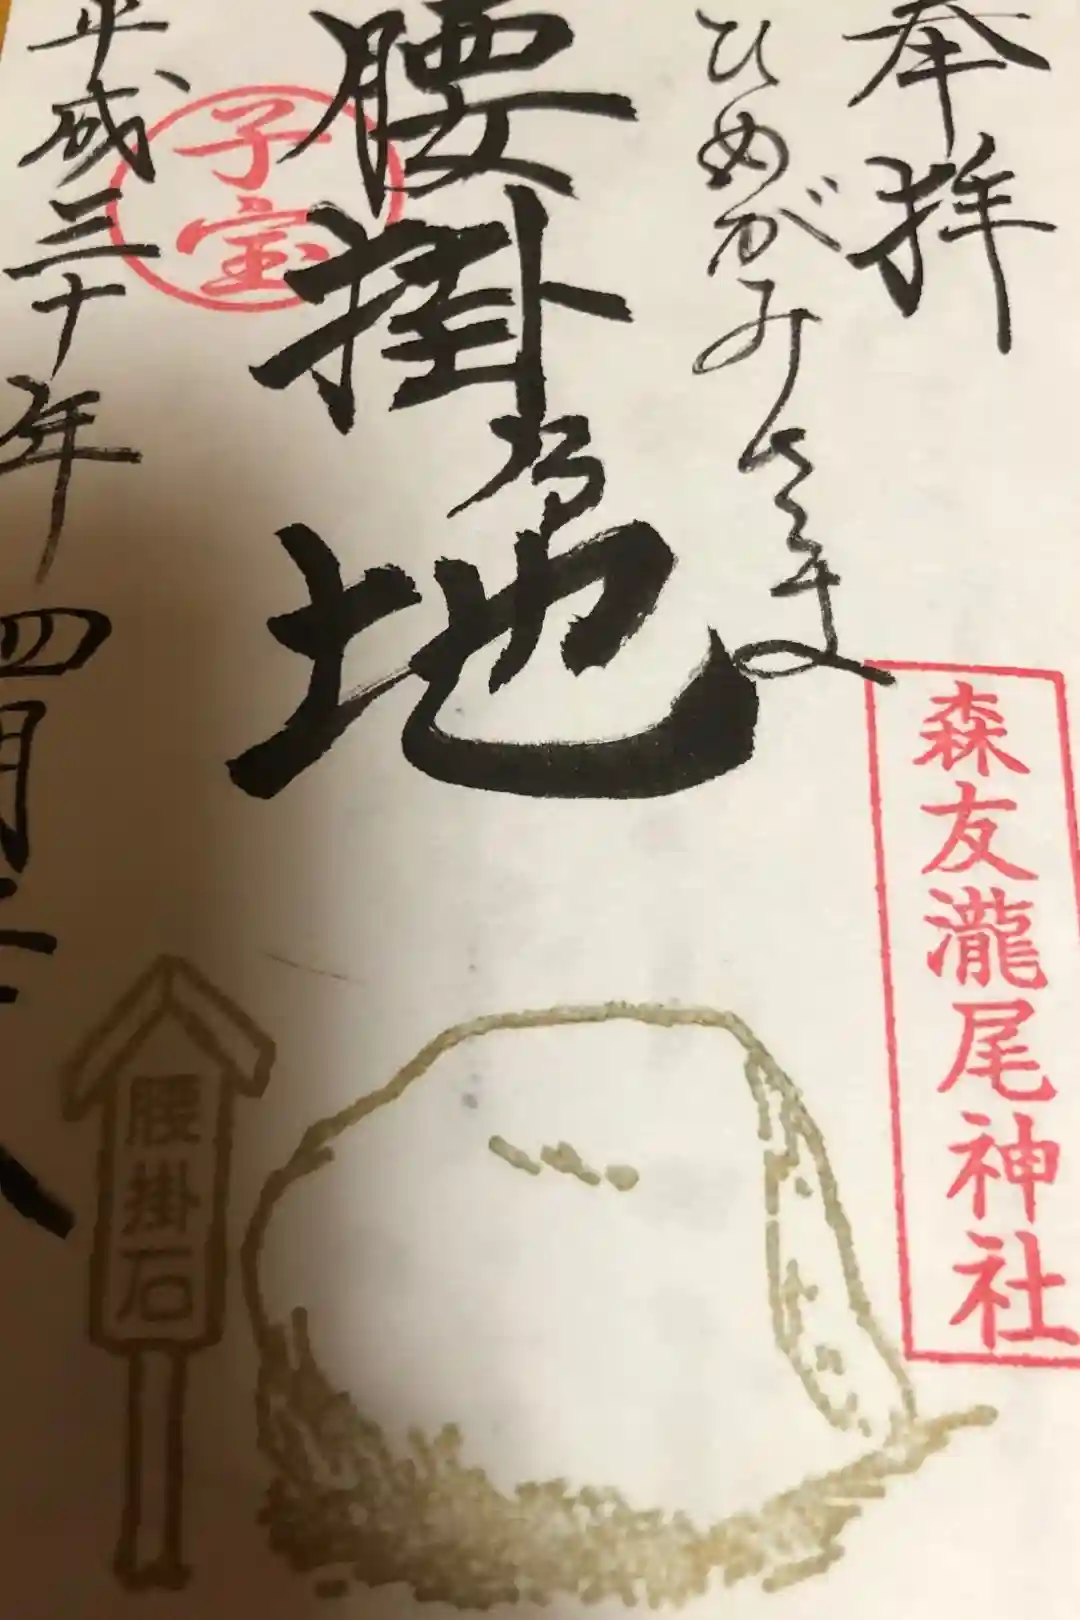 奉拝
森友瀧尾神社
ひめがみさま
腰掛乃地
子宝
平成三十年四月
腰掛石